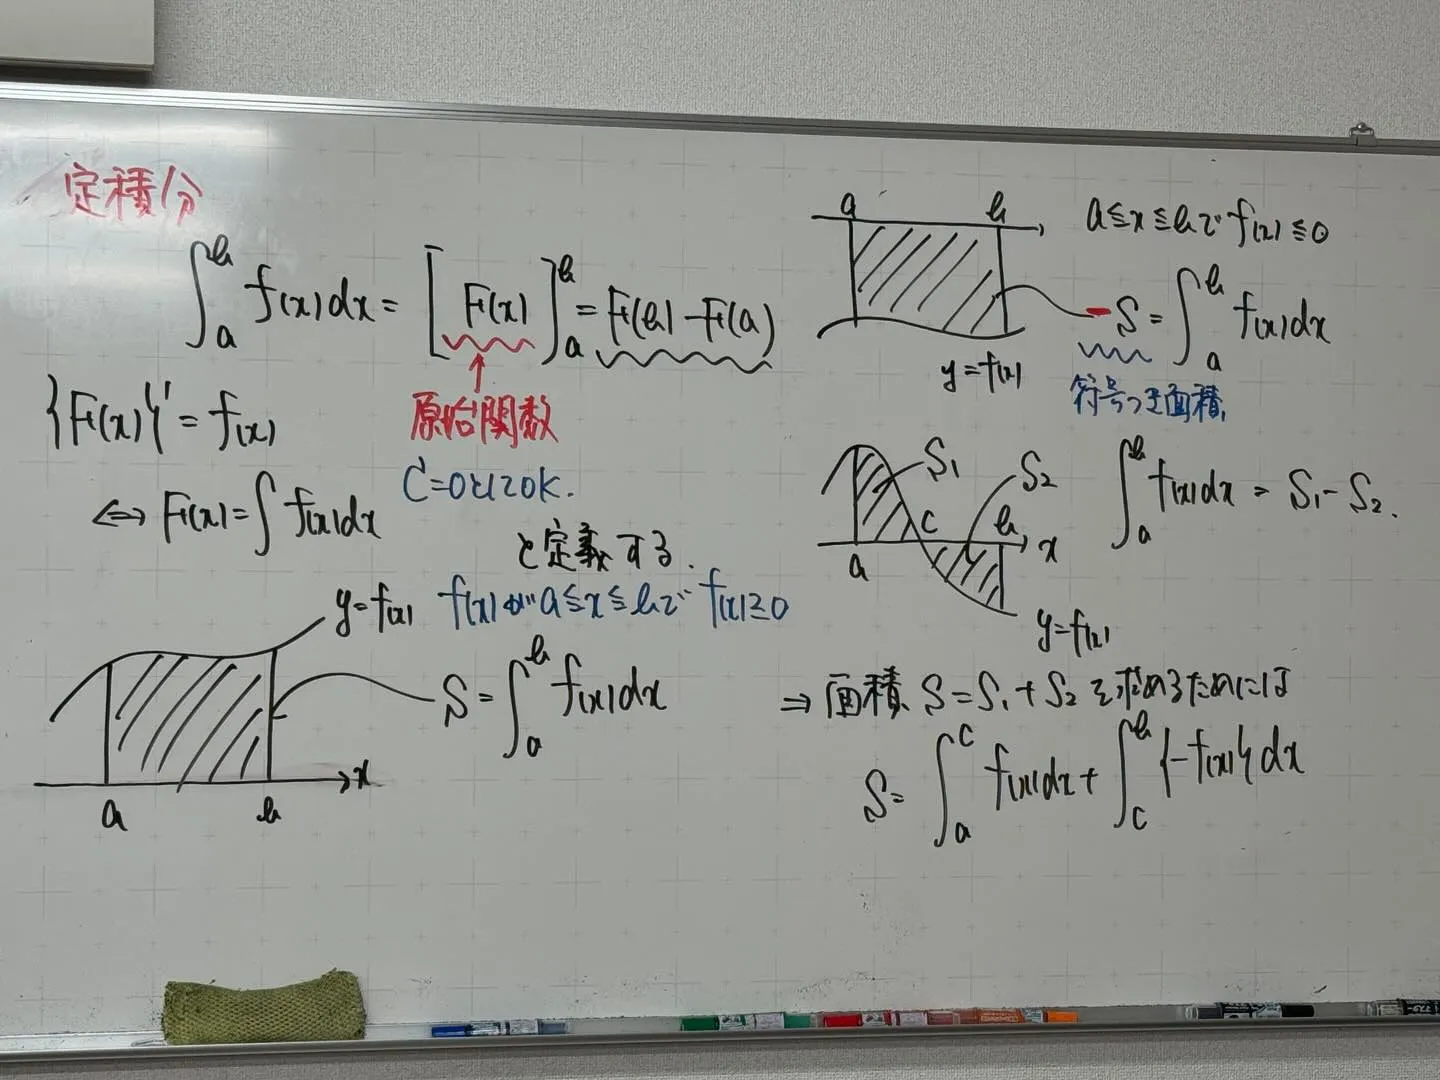 定積分
∫_a^b f(x)dx = [F(x)]_a^b = F(b) − F(a)
原始関数
{F(x)}' = f(x)
C=0としてOK.
⇔ F(x) = ∫ f(x)dx
と定義する.
f(x)が a≦x≦bで f(x)≧0
y=f(x)
S = ∫_a^b f(x)dx
a b x
a b
a≦x≦bで f(x)≦0
−S = ∫_a^b f(x)dx
y=f(x)
符号つき面積
S₁ S₂
∫_a^b f(x)dx = S₁−S₂.
a c b x
y=f(x)
⇒ 面積 S=S₁+S₂を求めるためには
S= ∫_a^c f(x)dx + ∫_c^b {−f(x)}dx